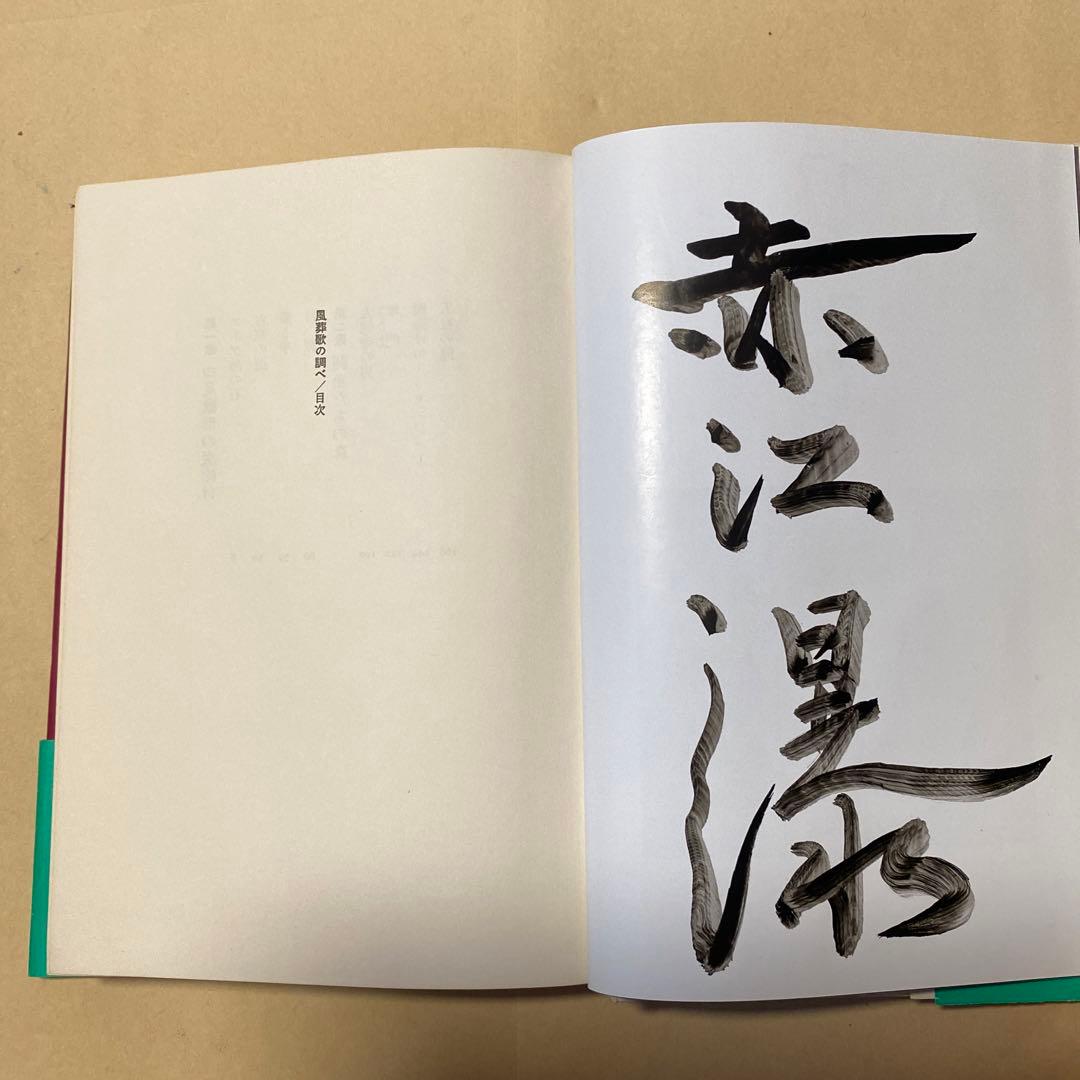 赤江瀑
風葬歌の調べ/目次